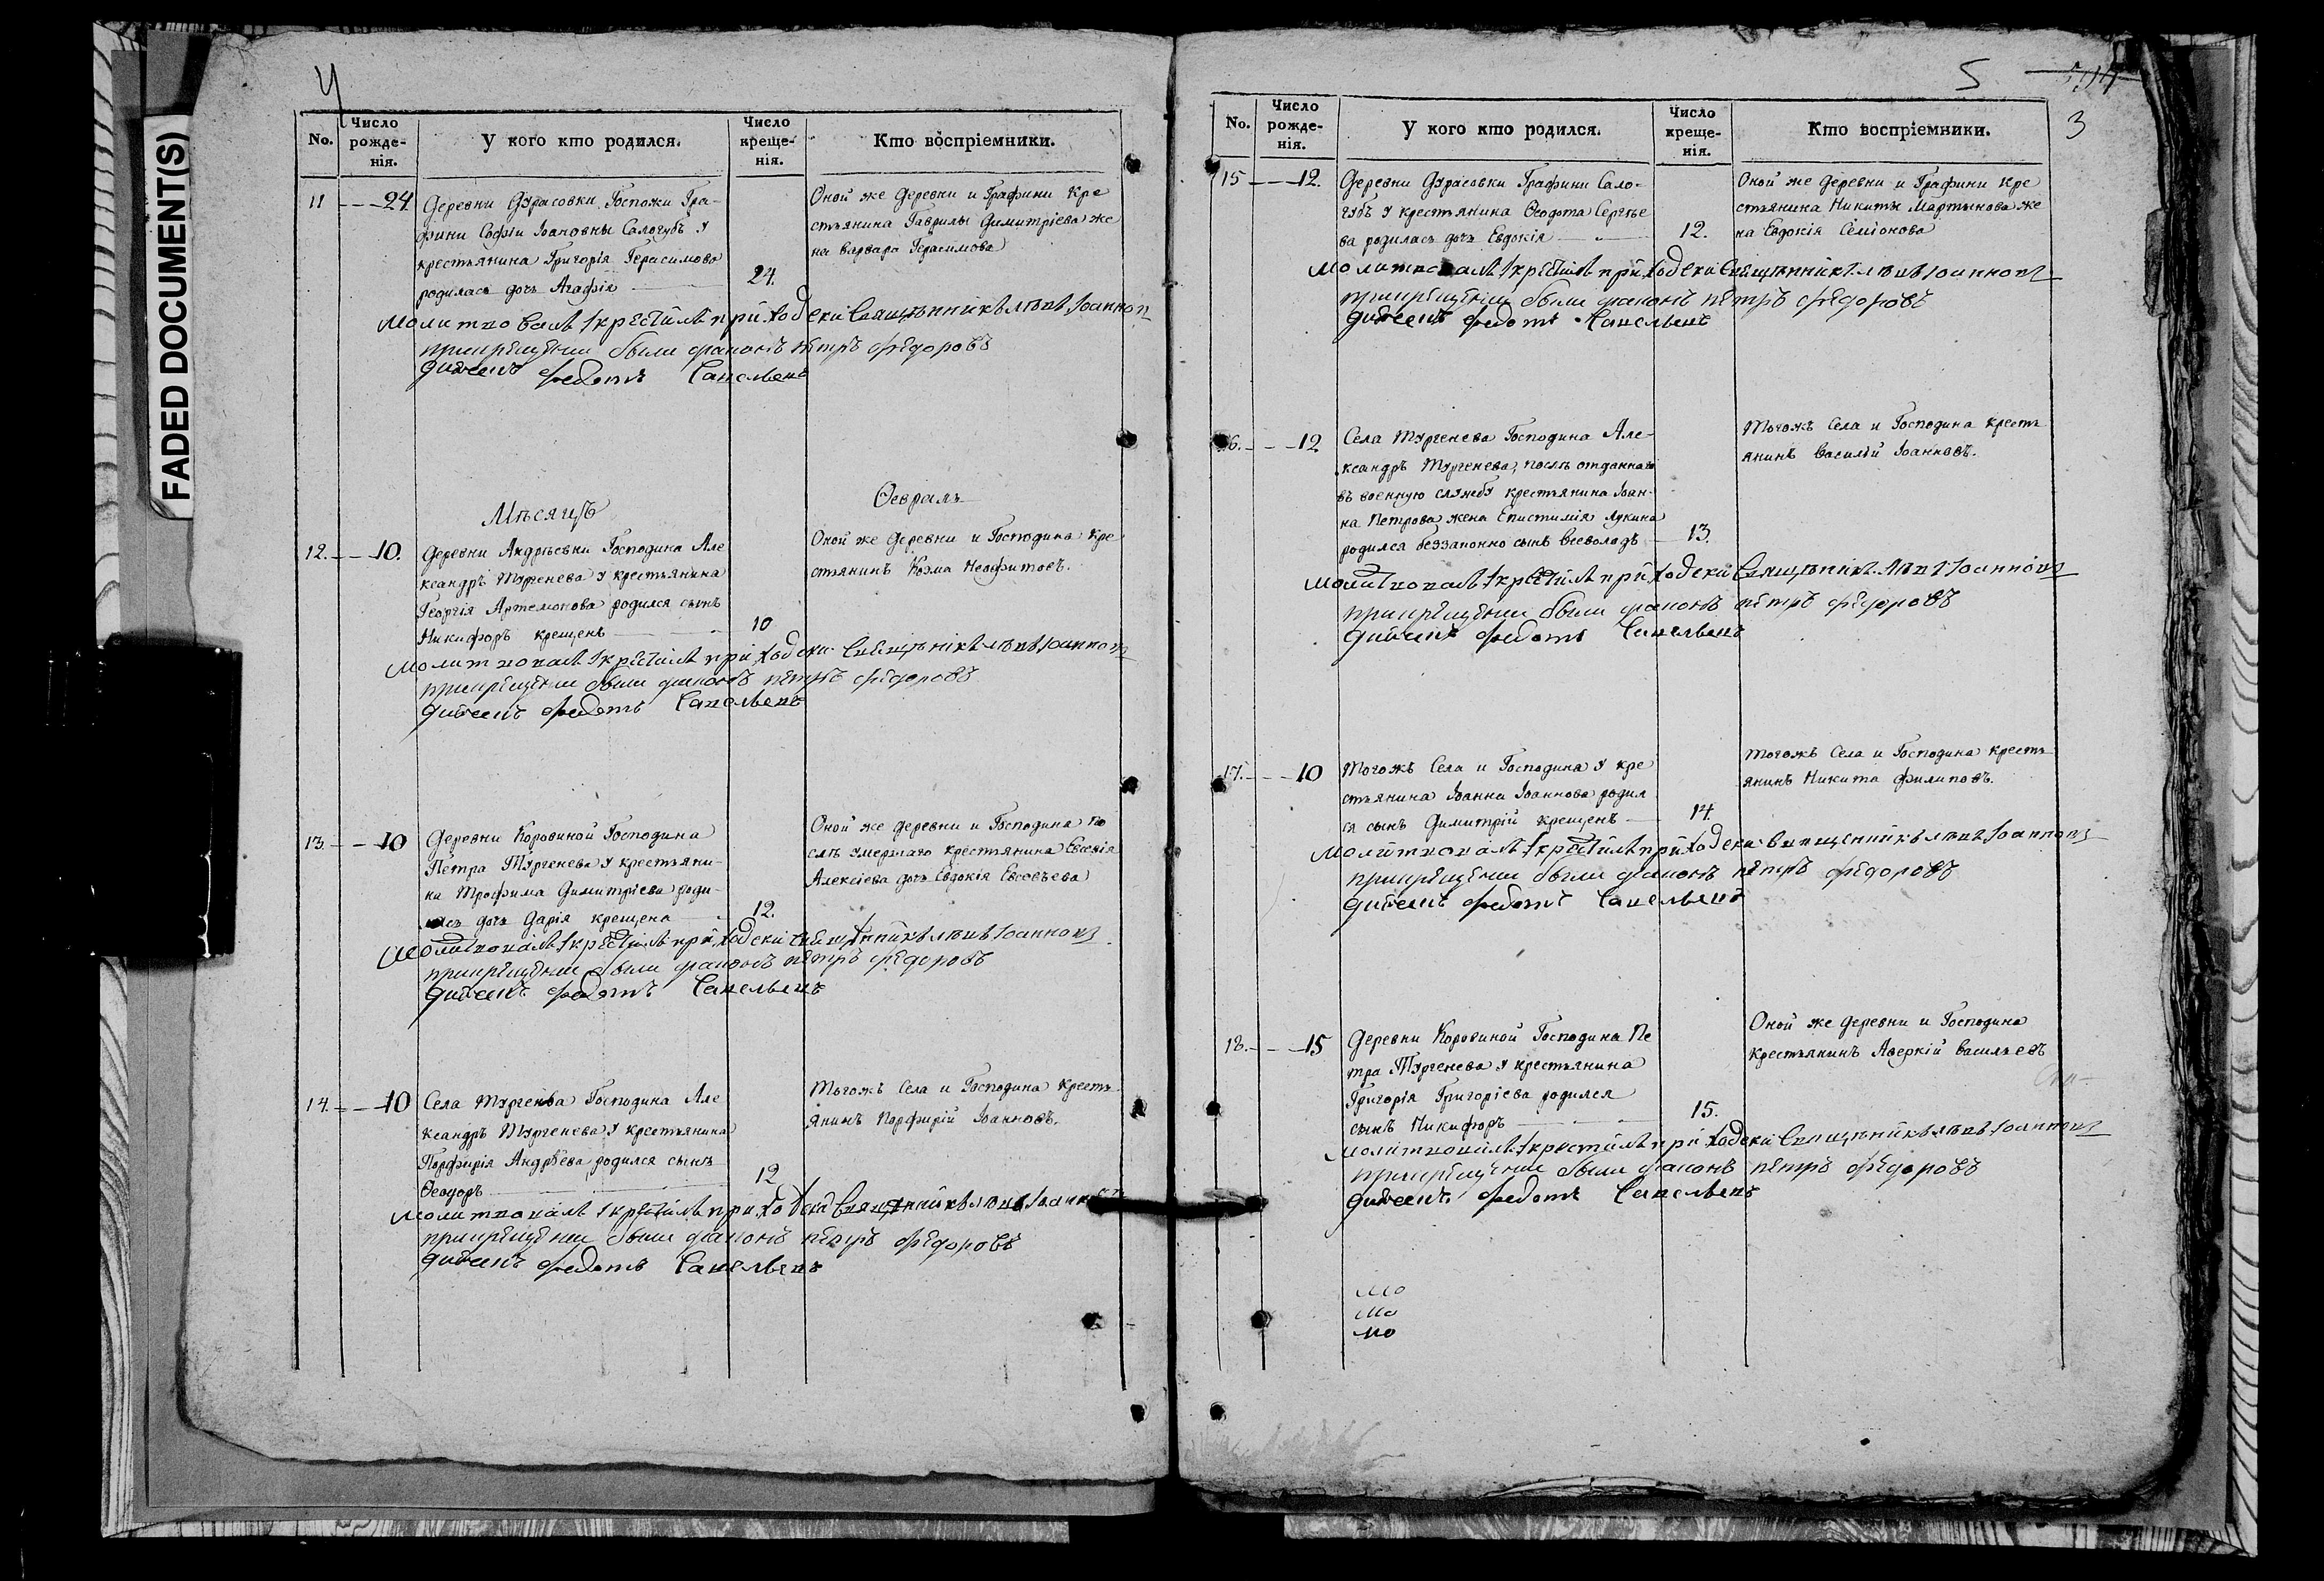 FADED DOCUMENT(S)
4
No.
Число рожде-нія.
У кого кто родился.
Число креще-нія.
Кто воспріемники.
11 24
Деревни Дурасовки Госпожи Гра-
фини Софіи Іоановны Салогубъ у
крестьянина Григорія Герасимова
родилась дочь Агафія
24.
Оной же деревни и Графини кре
стьянина Гаврилы Димитріева же
на Варвара Герасимова
молитвовалъ и крестилъ приходски священникъ левъ Іоаннов
при крещении были диаконъ петръ федоровъ
дичекъ федотъ Савельевъ
Мѣсяцъ
Февраль
12. 10.
Деревни Андреевки Господина Але
ксандръ Тургенева у крестьянина
Георгія Артемонова родился сынъ
Никифоръ крещенъ
10
Оной же деревни и Господина кре
стьянинъ Козма Неофитовъ.
молитвовалъ и крестилъ приходски священикъ левъ Іоаннов
при крещении были диаконъ петръ федоровъ
дичекъ федотъ Савельевъ
13. 10
Деревни Коровиной Господина
Петра Тургенева у крестьяни-
на Трофима Димитріева роди-
лась дочь Дарія крещена
12.
Оной же деревни и Господина по
слѣ умершаго крестьянина Евсевія
Алексіева дочь Евдокія Евсевьева
молитвовалъ и крестилъ приходски священникъ левъ Іоаннов
при крещении были диаконъ петръ федоровъ
дичекъ федотъ Савельевъ
14. 10
Села Тургенева Господина Але
ксандръ Тургенева у крестьянина
Порфирія Андрѣева родился сынъ
Феодоръ
12
Тогожъ Села и Господина кресть
янинъ Порфирій Іоанновъ.
молитвовалъ и крестилъ приходски священникъ левъ Іоаннов
при крещении были диаконъ петръ федоровъ
дичекъ федотъ Савельевъ
5
3
No.
Число рожде-нія.
У кого кто родился.
Число креще-нія.
Кто воспріемники.
15 12.
Деревни Дурасовки Графини Сало-
губъ у крестьянина Феодота Сергѣе
ва родилась дочь Евдокія
12.
Оной же деревни и Графини кре
стьянина Никиты Мартынова же
на Евдокія Семіонова
молитвовалъ и крестилъ приходски священникъ левъ Іоаннов
при крещении были диаконъ петръ федоровъ
дичекъ федотъ Савельевъ
16. 12
Села Тургенева Господина Але-
ксандръ Тургенева, послѣ отданнаго
въ военную службу крестьянина Іоан-
на Петрова жена Епистимія Лукина
родился беззаконно сынъ Всеволадъ
13.
Тогожъ Села и Господина кресть
янинъ Василій Іоанновъ.
молитвовалъ и крестилъ приходски священникъ левъ Іоаннов
при крещении были диаконъ петръ федоровъ
дичекъ федотъ Савельевъ
17. 10
Тогожъ Села и Господина у кре
стьянина Іоанна Іоаннова родил
ся сынъ Димитрій крещенъ
14.
Тогожъ Села и Господина кресть
янинъ Никита Филиповъ.
молитвовалъ и крестилъ приходски священникъ левъ Іоаннов
при крещении были диаконъ петръ федоровъ
дичекъ федотъ Савельевъ
18. 15
Деревни Коровиной Господина Пе
тра Тургенева у крестьянина
Григорія Григоріева родился
сынъ Никифоръ
15.
Оной же деревни и Господина
крестьянинъ Аверкій Васильевъ
молитвовалъ и крестилъ приходски священникъ левъ Іоаннов
при крещении были диаконъ петръ федоровъ
дичекъ федотъ Савельевъ
мо
мо
мо